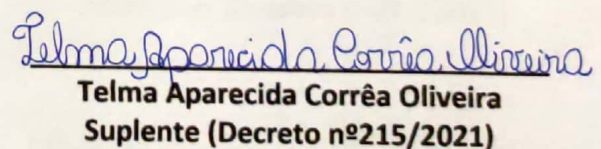 Telma Aparecida Corrêa Oliveira
Telma Aparecida Corrêa Oliveira
Suplente (Decreto nº215/2021)